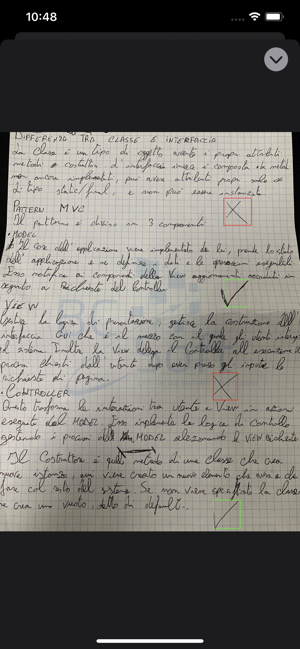 10:48
DIFFERENZA TRA CLASSE E INTERFACCIA
La classe è un tipo di oggetto avente i propri attributi
metodi e costruttori d'interfaccia invece è composta da metodi
non ancora implementati, può avere attributi propri solo se
di tipo static/final e non può essere instanziata
PATTERN MVC
Il pattern è diviso in 3 componenti
• MODEL
Il core dell'applicazione viene implementato da lui, prende lo stato
dell'applicazione e ne definisce i dati e le operazioni eseguibili
Esso notifica ai componenti della View aggiornamenti accaduti in
seguito a richieste del Controller
VIEW
gestisce la logica di presentazione, gestisce la costruzione dell'
interfaccia GUI che è il mezzo con il quale gli utenti
sistema. Inoltre la View delega il Controller all'esecuzione
processi chiesti dall'utente dopo aver preso gli input
richieste di pagina.
• CONTROLLER
Questo trasforma le interazioni tra utente e View in azioni
eseguite dal MODEL. Esso implementa la logica di controllo
gestendo i processi del MODEL selezionando le VIEW richieste
Il Costruttore è quel metodo di una classe che crea
nuove istanze, qui viene creato un nuovo elemento che avrà a che
fare col resto del sistema. Se non viene specificato la classe
ne crea uno vuoto, detto di default.